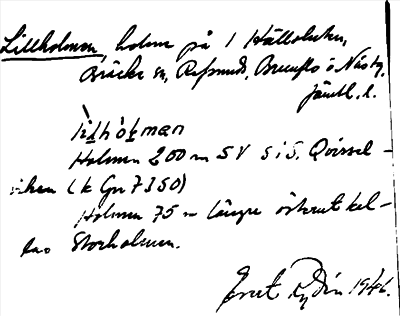 Lillholmen, holme på 1 Hällsluten,
Bräcke sn, Refsunds, Brunflo o Näs tg,
Jämtl. l.
Holmen 200 m SV S i S. Qvissel-
viken (k Gn 7350)
Holmen 75 m längre österut kal-
las Storholmen.
Ernst Rydén 1946.